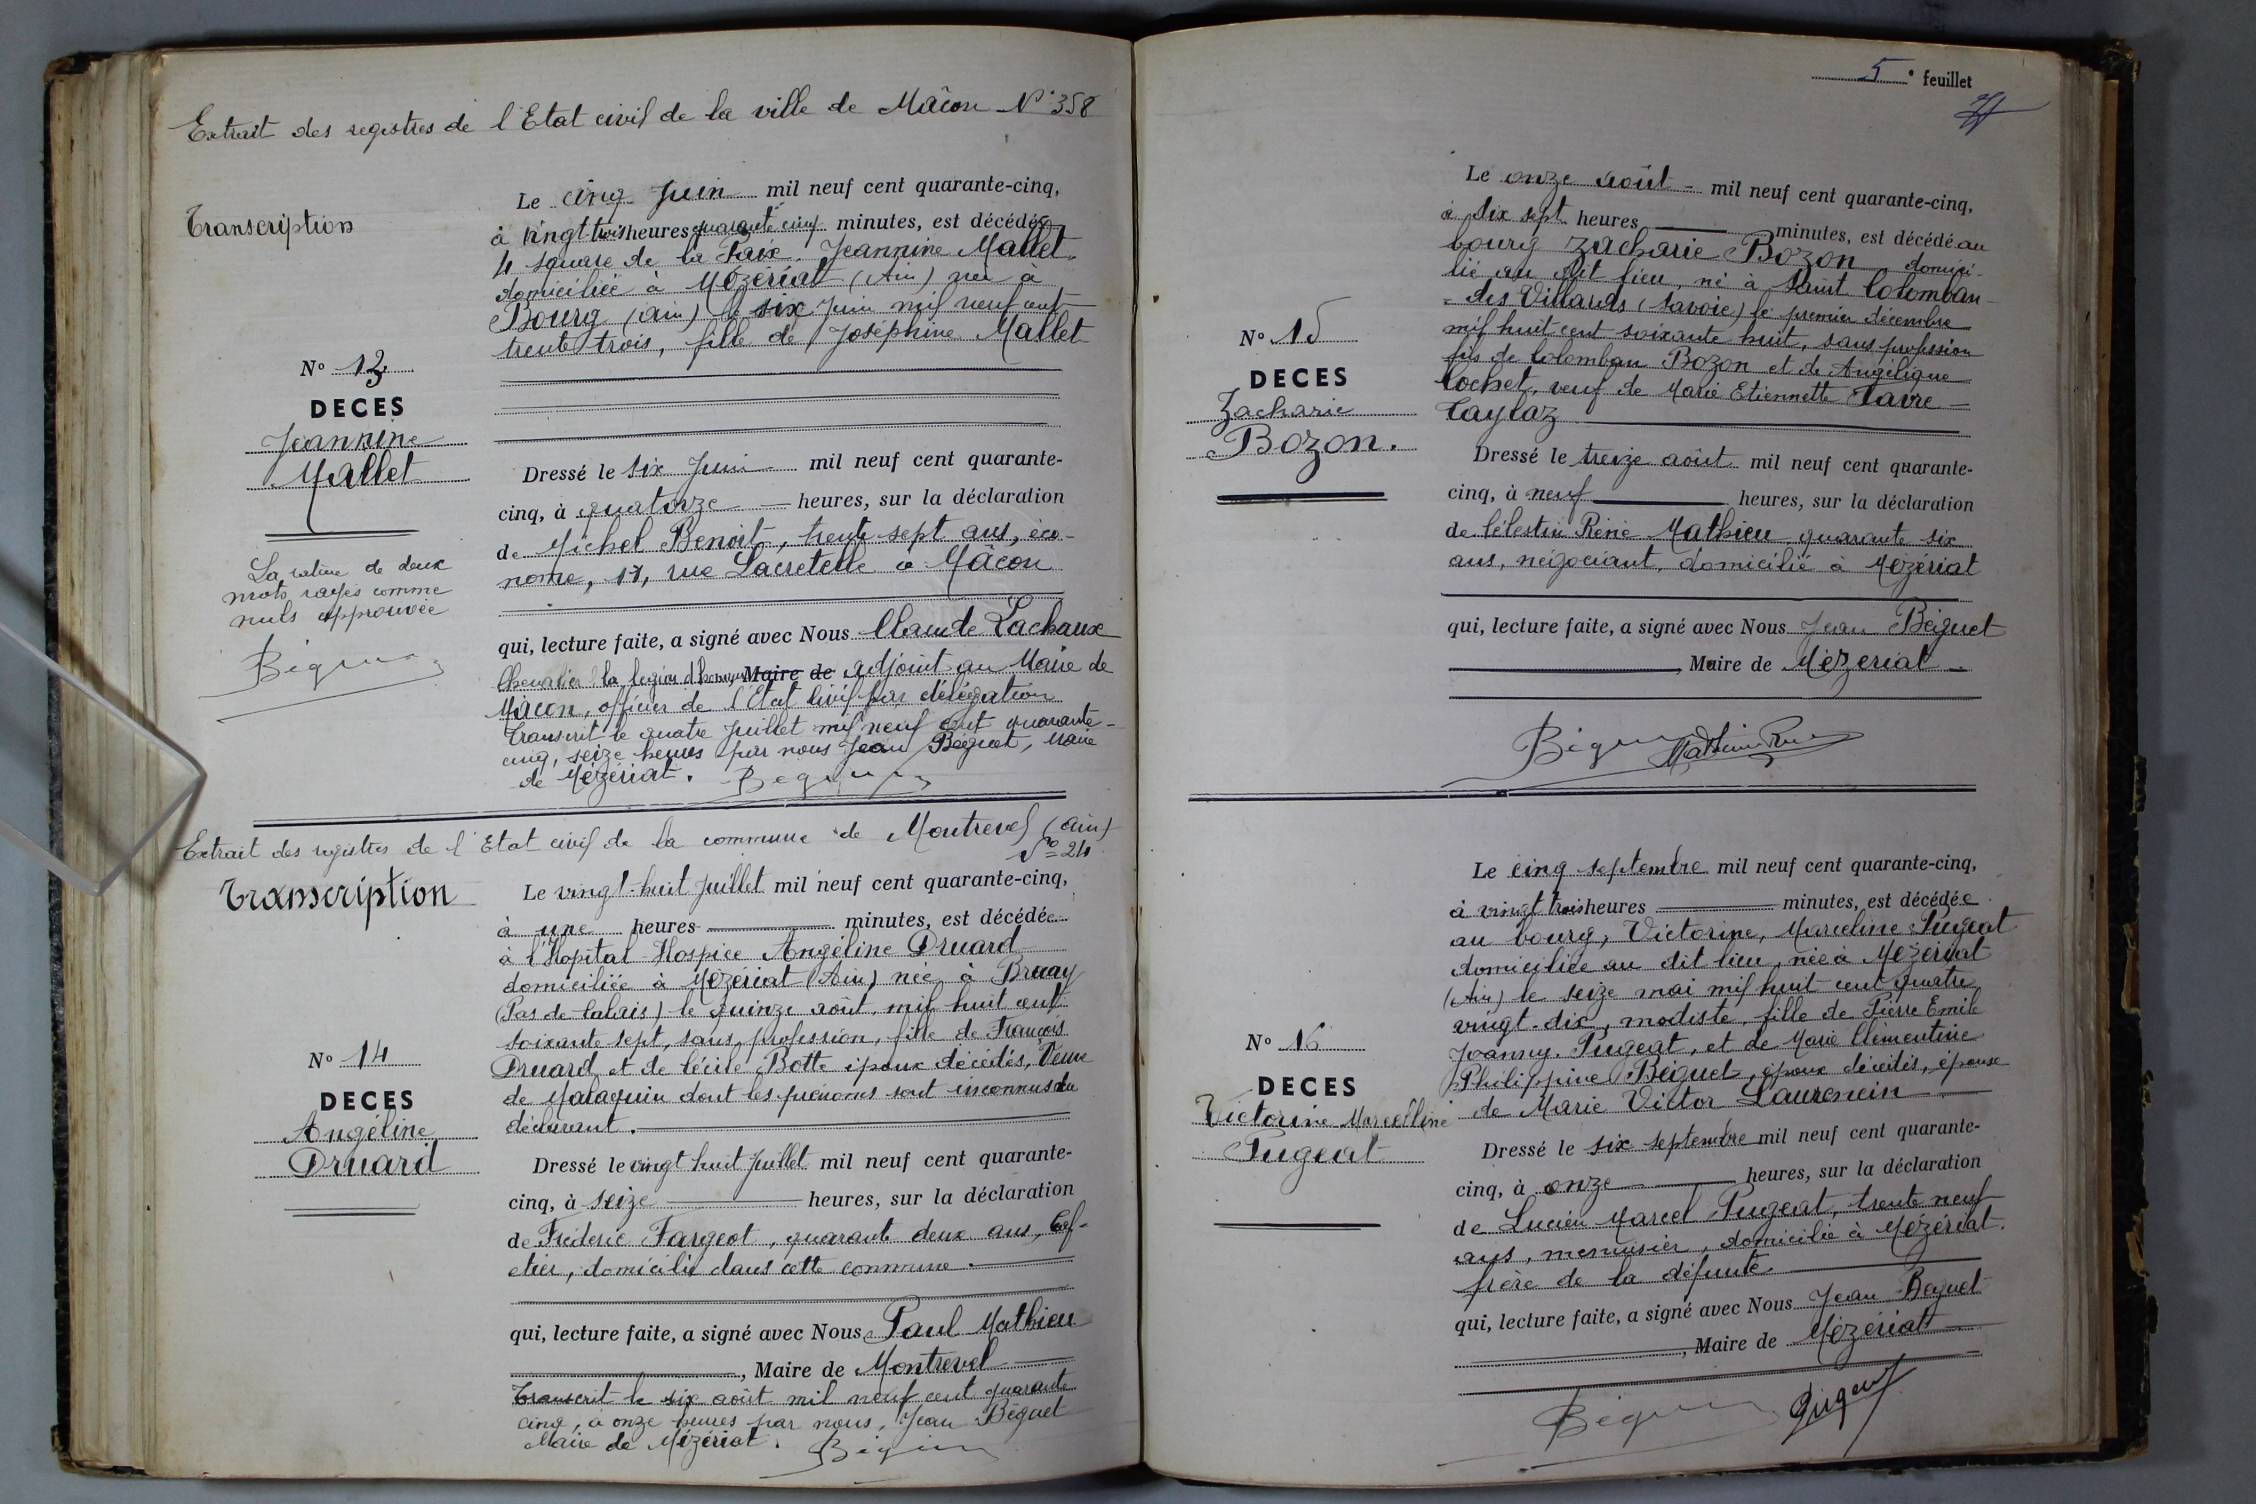 Extrait des registres de l'Etat civil de la ville de Mâcon N° 358
Transcription
N° 13
DECES
Jeannine
Mallet
La rature de deux
mots rayés comme
nuls approuvée
Le cinq Juin mil neuf cent quarante-cinq,
à vingt trois heures quarante cinq minutes, est décédée
4 square de la Paix, Jeannine Mallet
domiciliée à Mézériat (Ain) née à
Bourg (Ain) le six Juin mil neuf cent
trente trois, fille de Joséphine Mallet
Dressé le six Juin mil neuf cent quarante-
cinq, à quatorze heures, sur la déclaration
de Michel Benoit, trente sept ans, éco-
nome, 17, rue Lacretelle à Mâcon
qui, lecture faite, a signé avec Nous Claude Lachaux
Chevalier la légion d'honneur Maire de adjoint au Maire de
Mâcon, officier de l'Etat Civil par délégation
Transcrit le quatre Juillet mil neuf cent quarante-
cinq, seize heures par nous Jean Béguet, Maire
de Mézériat.
Extrait des registres de l'Etat civil de la commune de Montrevel (Ain)
N° 24
Transcription
N° 14
DECES
Angéline
Druard
Le vingt-huit Juillet mil neuf cent quarante-cinq,
à une heures minutes, est décédée
à l'Hopital-Hospice Angéline Druard
domiciliée à Mézériat (Ain) née à Bruay
(Pas de Calais) le quinze août mil huit cent
soixante sept, sans profession, fille de François
Druard et de Cécile Botte époux décédés, Veuve
de Malaquin dont les prénoms sont inconnus du
déclarant.
Dressé le vingt huit Juillet mil neuf cent quarante-
cinq, à seize heures, sur la déclaration
de Fréderic Fargeot, quarante deux ans, Caf-
etier, domicilié dans cette commune.
qui, lecture faite, a signé avec Nous Paul Mathieu
, Maire de Montrevel
Transcrit le six août mil neuf cent quarante
cinq, à onze heures par nous, Jean Béguet
Maire de Mézériat.
5e feuillet
N° 15
DECES
Zacharie
Bozon.
Le onze août mil neuf cent quarante-cinq,
à dix sept heures minutes, est décédé au
bourg Zacharie Bozon domici-
lié au dit lieu, né à Saint Colomban-
des Villards (Savoie) le premier décembre
mil huit cent soixante huit, sans profession
fils de Colomban Bozon et de Angélique
Cochet, veuf de Marie Etiennette Favre-
Taylaz
Dressé le treize août mil neuf cent quarante-
cinq, à neuf heures, sur la déclaration
de Célestin René Mathieu quarante six
ans, négociant, domicilié à Mézériat
qui, lecture faite, a signé avec Nous Jean Béguet
, Maire de Mézériat
N° 16
DECES
Victorine Marcelline
Pugeat
Le cinq septembre mil neuf cent quarante-cinq,
à vingt trois heures minutes, est décédée
au bourg, Victorine, Marceline Pugeat
domiciliée au dit lieu, née à Mézériat
(Ain) le seize mai mil huit cent quatre
vingt-dix, modiste, fille de Pierre Emile
Joanny Pugeat, et de Marie Clémentine
Philippine Béguet, époux décédés, épouse
de Marie Victor Laurencin
Dressé le six septembre mil neuf cent quarante-
cinq, à onze heures, sur la déclaration
de Lucien Marcel Pugeat, trente neuf
ans, menuisier, domicilié à Mézériat.
frère de la défunte
qui, lecture faite, a signé avec Nous Jean Béguet
, Maire de Mézériat
Pugeat